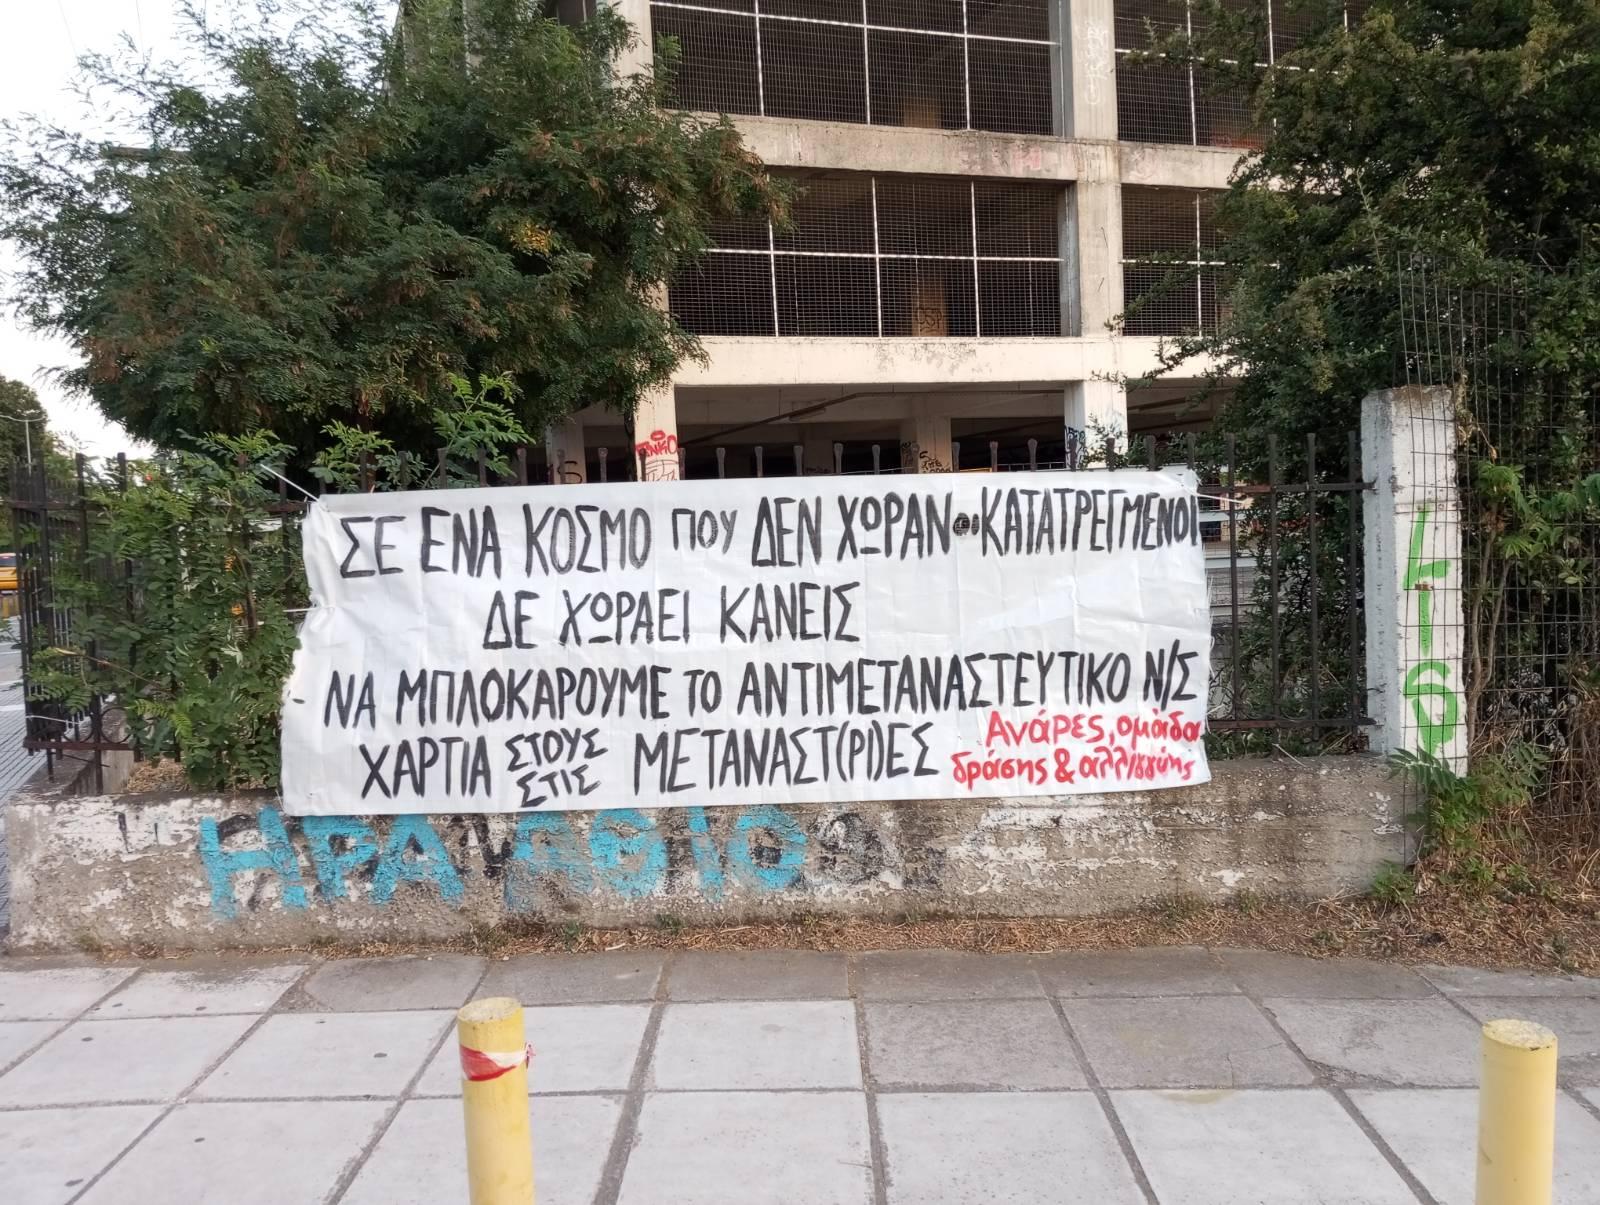 ΣΕ ΕΝΑ ΚΟΣΜΟ ΠΟΥ ΔΕΝ ΧΩΡΑΝ ΟΙ ΚΑΤΑΤΡΕΓΜΕΝΟΙ
ΔΕ ΧΩΡΑΕΙ ΚΑΝΕΙΣ
ΝΑ ΜΠΛΟΚΑΡΟΥΜΕ ΤΟ ΑΝΤΙΜΕΤΑΝΑΣΤΕΥΤΙΚΟ Ν/Σ
ΧΑΡΤΙΑ ΣΤΟΥΣ ΣΤΙΣ ΜΕΤΑΝΑΣΤ(ΡΙ)ΕΣ
Ανάρες, ομάδα
δράσης & αλλ/γγύης
ΗΡΑ